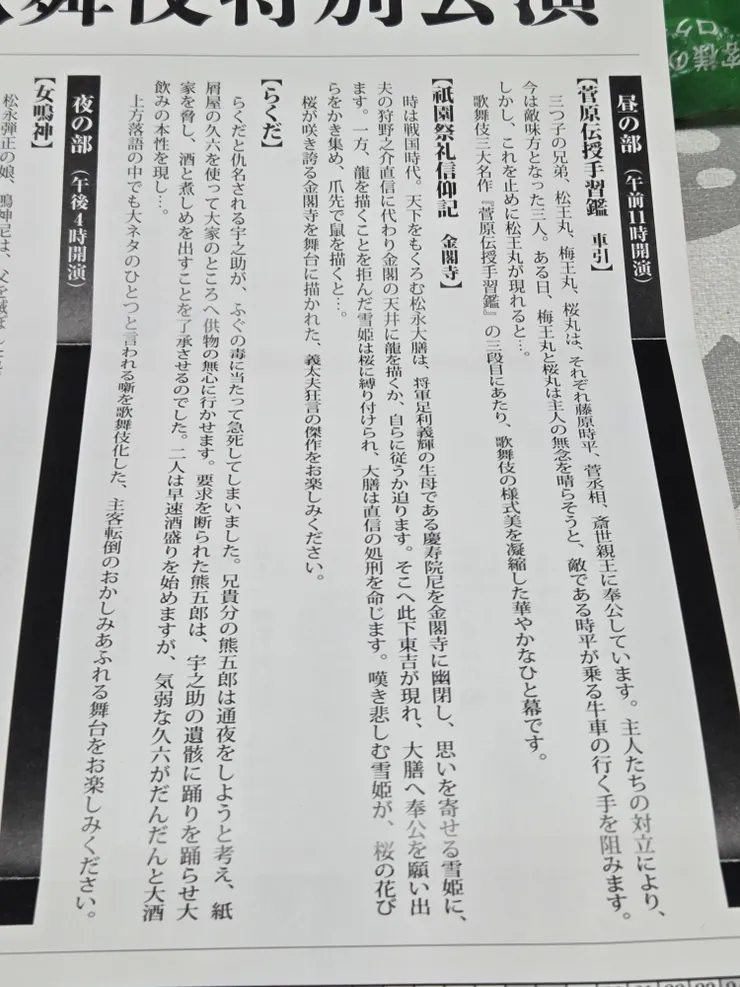 歌舞伎特別公演
昼の部(午前11時開演)
【菅原伝授手習鑑 車引】
三つ子の兄弟、松王丸、梅王丸、桜丸は、それぞれ藤原時平、菅丞相、斎世親王に奉公しています。主人たちの対立により、
今は敵味方となった三人。ある日、梅王丸と桜丸は主人の無念を晴らそうと、敵である時平が乗る牛車の行く手を阻みます。
しかし、これを止めに松王丸が現れると…。
歌舞伎三大名作『菅原伝授手習鑑』の三段目にあたり、歌舞伎の様式美を凝縮した華やかなひと幕です。
【祇園祭礼信仰記 金閣寺】
時は戦国時代。天下をもくろむ松永大膳は、将軍足利義輝の生母である慶寿院尼を金閣寺に幽閉し、思いを寄せる雪姫に、
夫の狩野之介直信に代わり金閣の天井に龍を描くか、自らに従うか迫ります。そこへ此下東吉が現れ、大膳へ奉公を願い出
ます。一方、龍を描くことを拒んだ雪姫は桜に縛り付けられ、大膳は直信の処刑を命じます。嘆き悲しむ雪姫が、桜の花び
らをかき集め、爪先で鼠を描くと…。
桜が咲き誇る金閣寺を舞台に描かれた、義太夫狂言の傑作をお楽しみください。
【らくだ】
らくだと仇名される宇之助が、ふぐの毒に当たって急死してしまいました。兄貴分の熊五郎は通夜をしようと考え、紙
屑屋の久六を使って大家のところへ供物の無心に行かせます。要求を断られた熊五郎は、宇之助の遺骸に踊りを踊らせ大
家を脅し、酒と煮しめを出すことを了承させるのでした。二人は早速酒盛りを始めますが、気弱な久六がだんだんと大酒
飲みの本性を現し…。
上方落語の中でも大ネタのひとつと言われる噺を歌舞伎化した、主客転倒のおかしみあふれる舞台をお楽しみください。
夜の部(午後4時開演)
【女鳴神】
松永弾正の娘、鳴神尼は、父を滅ぼした
客様の